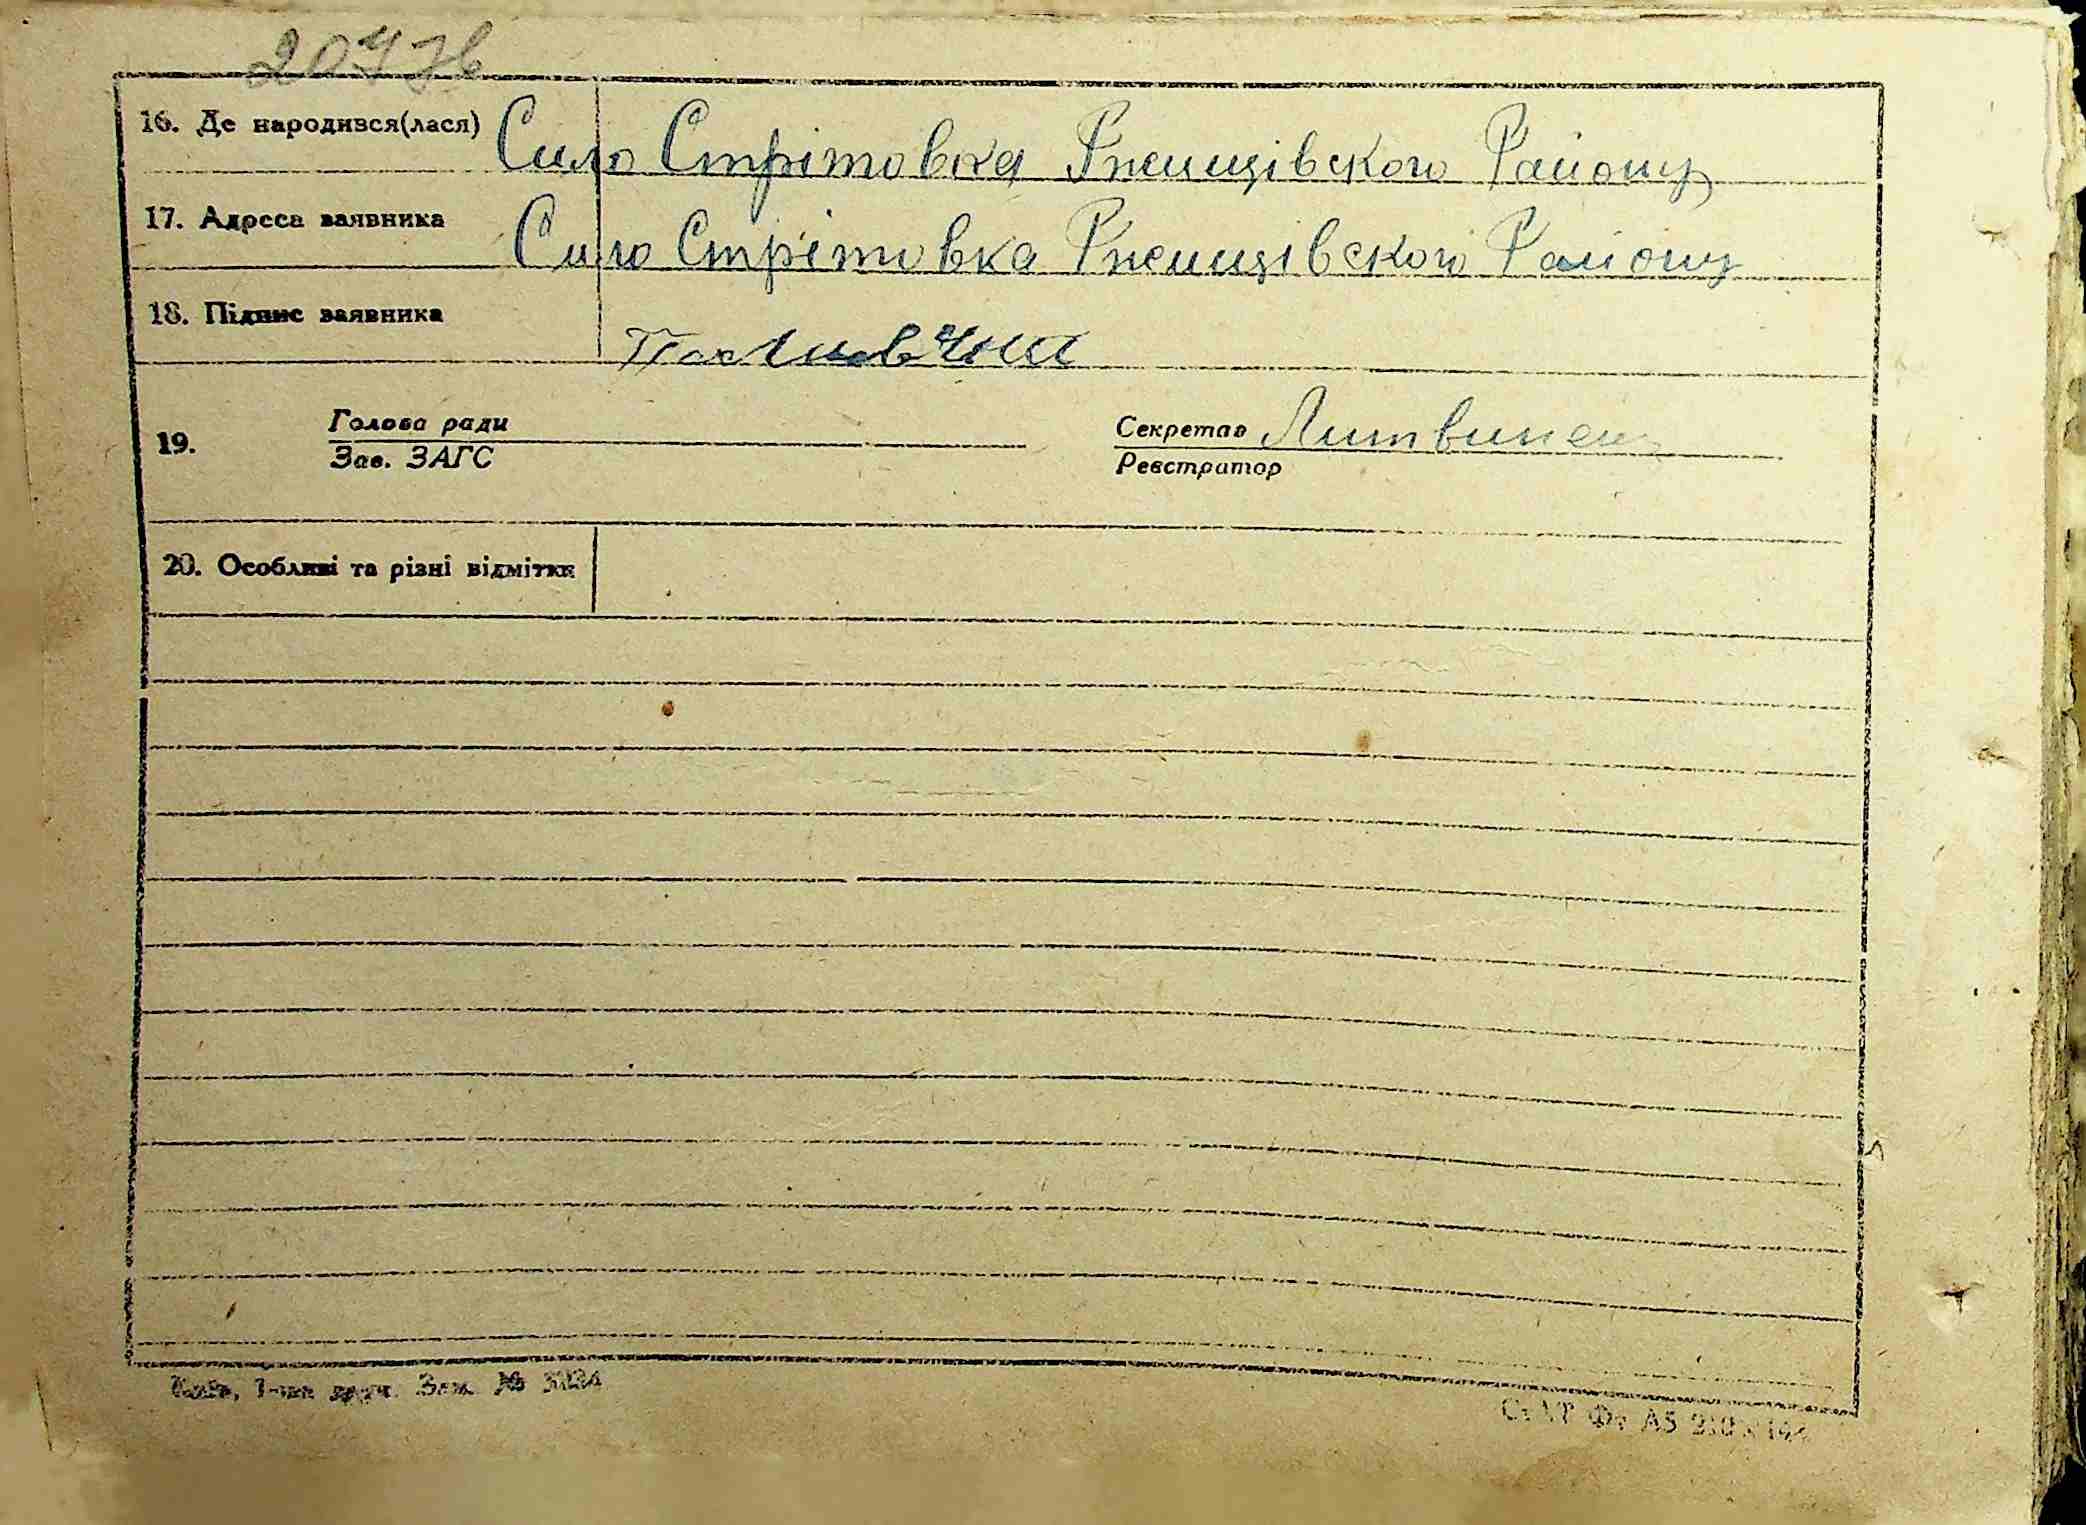 16. Де народився(лася) Сило Стрітовка Ржищівского Району
17. Адреса заявника Сило Стрітовка Ржищівского Району
18. Підпис заявника
19. Голова ради Секретар Литвинец
Зав. ЗАГС Реєстратор
20. Особливі та різні відмітки
Київ, 1-ша друк. Зам. №
Фт А5 210 x